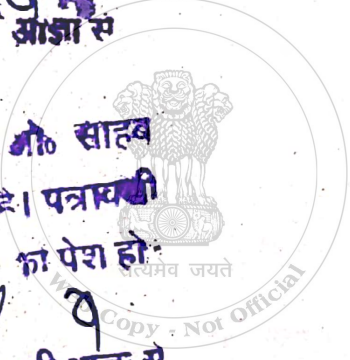 आज्ञा से
साहब
है। पत्रावली
का पेश हो
सत्यमेव जयते
Web Copy - Not Official